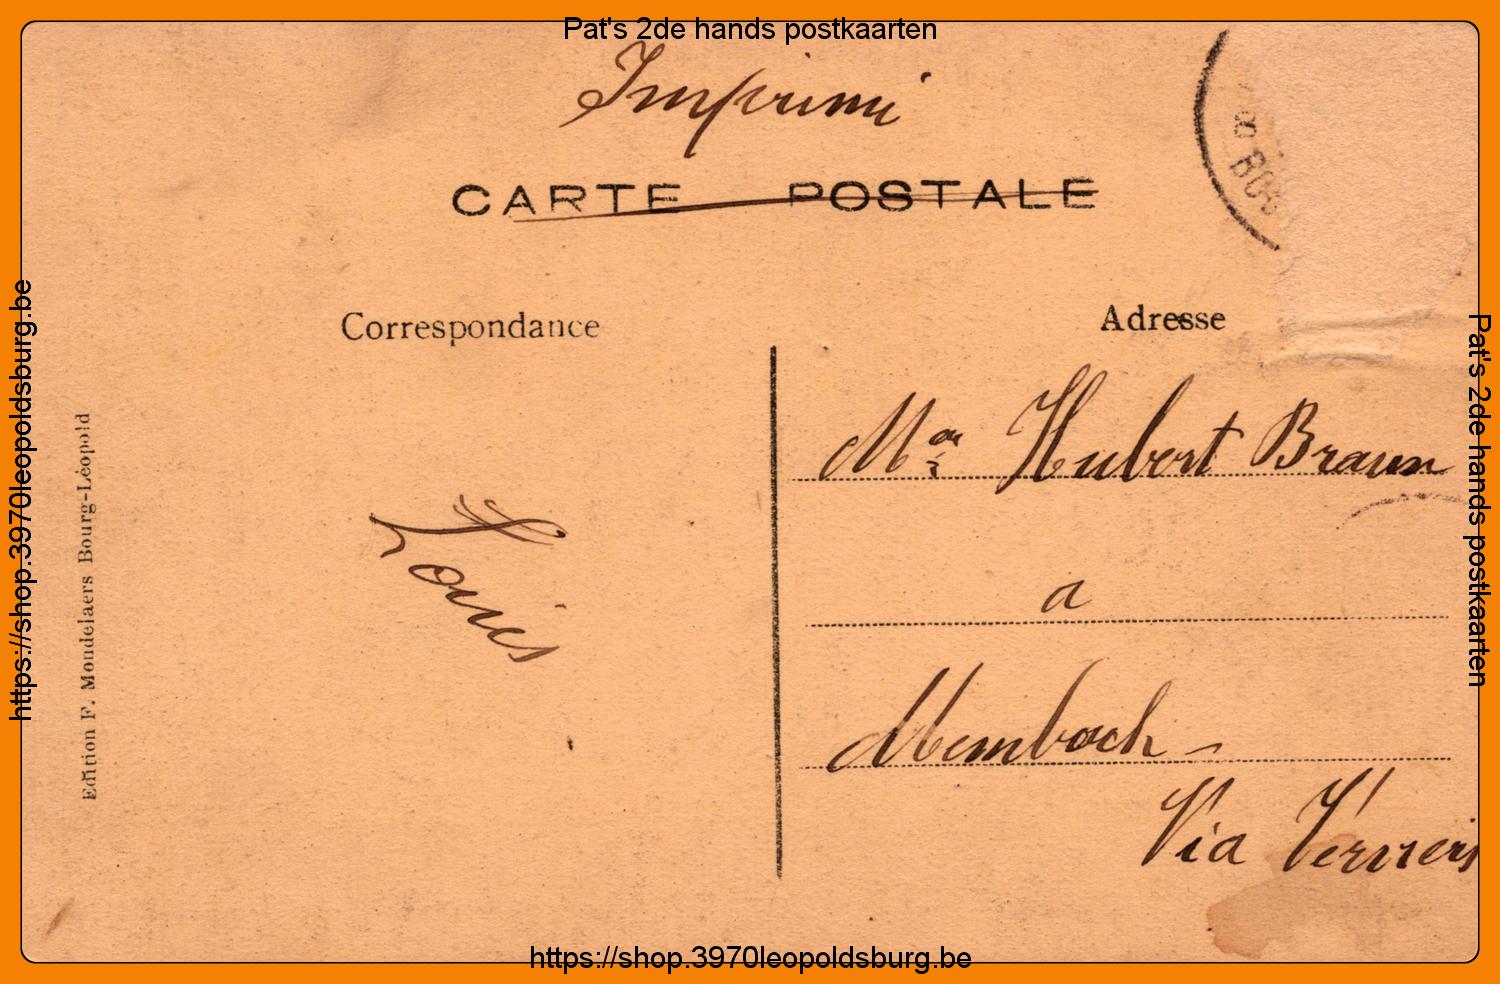 Pat's 2de hands postkaarten
Imprimi
CARTE POSTALE
Correspondance
Adresse
Mr Hubert Braun
a
Membach
Via Verviers
Louis
Edition F. Moudelaers Bourg-Léopold
https://shop.3970leopoldsburg.be
Pat's 2de hands postkaarten
https://shop.3970leopoldsburg.be